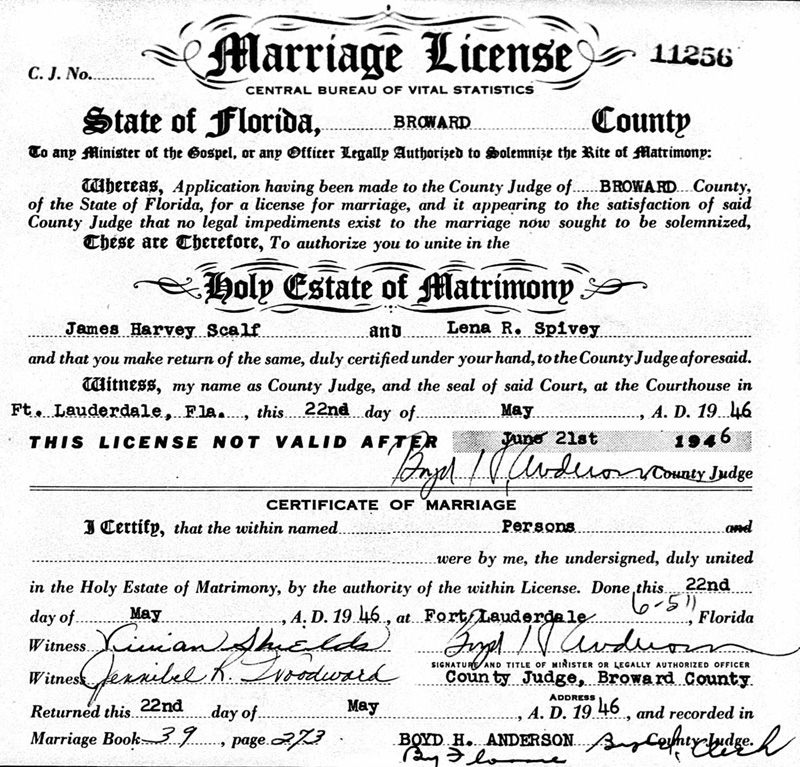 Marriage License 11256
C. J. No.
CENTRAL BUREAU OF VITAL STATISTICS
State of Florida, BROWARD County
To any Minister of the Gospel, or any Officer Legally Authorized to Solemnize the Rite of Matrimony:
Whereas, Application having been made to the County Judge of BROWARD County,
of the State of Florida, for a license for marriage, and it appearing to the satisfaction of said
County Judge that no legal impediments exist to the marriage now sought to be solemnized,
These are Therefore, To authorize you to unite in the
Holy Estate of Matrimony
James Harvey Scalf and Lena R. Spivey
and that you make return of the same, duly certified under your hand, to the County Judge aforesaid.
Witness, my name as County Judge, and the seal of said Court, at the Courthouse in
Ft. Lauderdale, Fla. , this 22nd day of May , A. D. 19 46
THIS LICENSE NOT VALID AFTER June 21st 1946
Boyd H. Anderson County Judge
CERTIFICATE OF MARRIAGE
I Certify, that the within named Persons and
were by me, the undersigned, duly united
in the Holy Estate of Matrimony, by the authority of the within License. Done this 22nd
day of May , A. D. 19 46, at Fort Lauderdale , Florida
Witness Vivian Shields Boyd H. Anderson
SIGNATURE AND TITLE OF MINISTER OR LEGALLY AUTHORIZED OFFICER
Witness Jennibel R. Woodward County Judge, Broward County
ADDRESS
Returned this 22nd day of May , A. D. 19 46, and recorded in
Marriage Book 39 , page 273 BOYD H. ANDERSON County Judge.
By